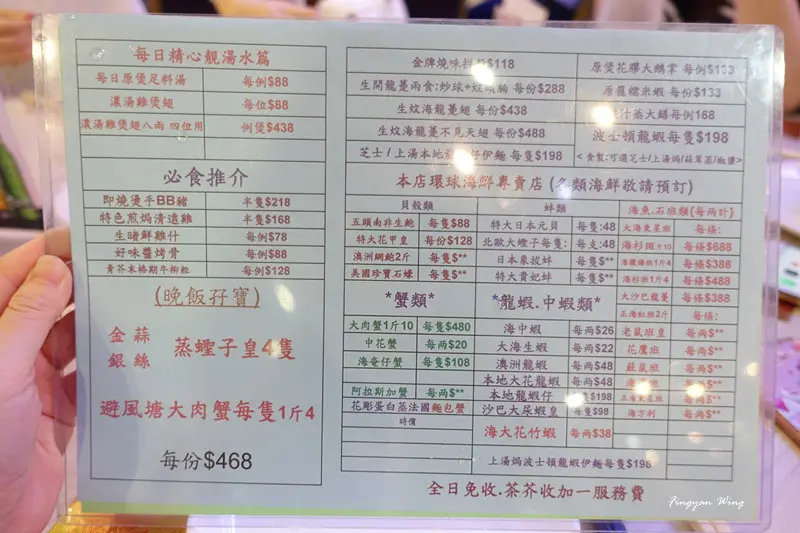 每日精心靚湯水篇
每日原煲足料湯 每例$88
濃湯雞煲翅 每位$88
濃湯雞煲翅八兩 四位用 例煲$438
必食推介
即燒燙手BB豬 半隻$218
特色煎焗清遠雞 半隻$168
生啫鮮雞什 每例$78
好味醬烤骨 每例$88
青芥末格期牛柳粒 每例$128
(晚飯孖寶)
金銀 蒜絲 蒸蟶子皇4隻
避風塘大肉蟹每隻1斤4
每份$468
金牌燒味拼 $118
生開龍躉兩食:炒球 $288
生炆海龍躉翅 每份$438
生炆海龍躉不見天翅 每份$488
芝士/上湯本地龍 仔伊麵 每隻$198
原煲花膠大鵝掌 每例$133
原籠糯米蝦 每份$133
汁蒸大鱔每例168
波士頓龍蝦每隻$198
<食製:可選芝士/上湯焗/蒜茸蒸/椒鹽>
本店環球海鮮專賣店 (各類海鮮敬請預訂)
貝殼類
五頭南非生鮑 每隻$88
特大花甲皇 每份$128
澳洲網鮑2斤 每隻$**
美國珍寶石蠔 每隻$**
*蟹類*
大肉蟹1斤10 每隻$480
中花蟹 每两$20
海奄仔蟹 每隻$108
阿拉斯加蟹 每两$**
花彫蛋白蒸法國麵包蟹
時價
蚌類
特大日本元貝 每隻:48
北歐大蟶子每隻: 每支:48
日本象拔蚌 每隻$**
特大貴妃蚌 每隻$**
*龍蝦.中蝦類*
海中蝦 每两$26
大海生蝦 每两$22
澳洲龍蝦 每两$48
本地大花龍蝦 每两$48
本地龍蝦仔 $198
沙巴大尿蝦皇 每隻$98
海大花竹蝦 每两$38
上湯焗波士頓龍蝦伊麵每隻$198
海魚.石班類(每两計)
大海東星班 每條:
海杉斑片10 每條$688
海龍膽班1斤4 每條$388
海杉班1斤4 每條$488
大沙巴龍躉 每條$388
正海紅班2斤 每條:
老鼠班皇 每两$**
花鷹班 每两$**
蘇鼠班 每两$**
每两$**
正海東星班 每两$**
海方利 每两$**
全日免收.茶芥收加一服務費
Fingyan Wing